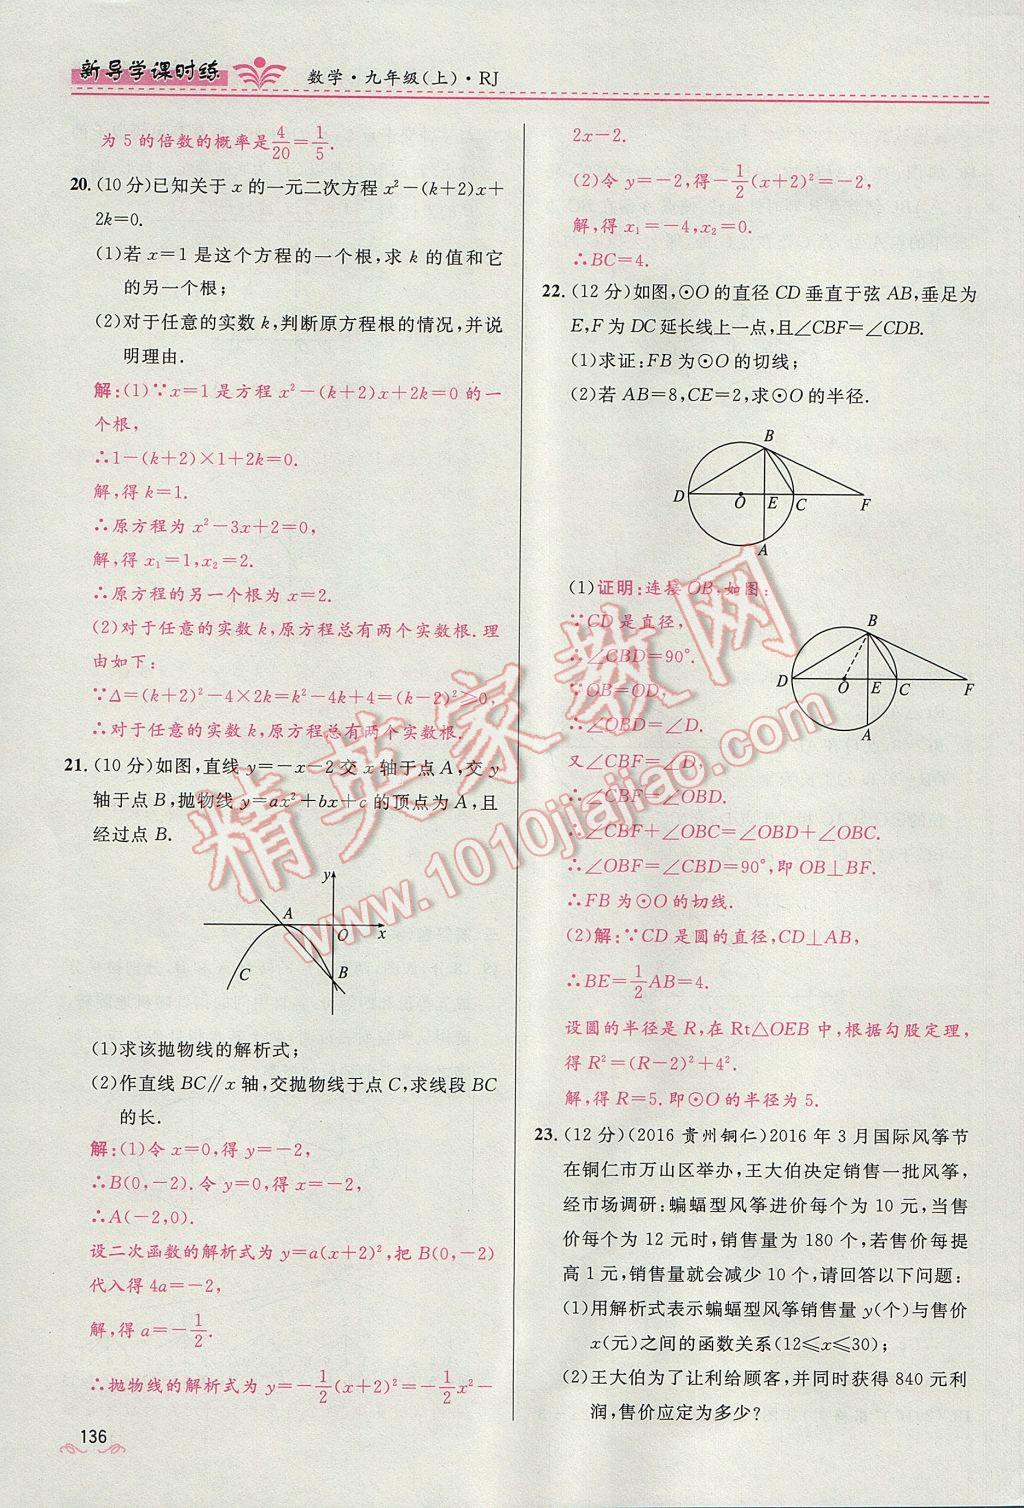 新导学课时练 数学·九年级(上)·RJ
为 5 的倍数的概率是4/20=1/5.
20.(10 分)已知关于 x 的一元二次方程 x²-(k+2)x+
2k=0.
(1)若 x=1 是这个方程的一个根,求 k 的值和它
的另一个根;
(2)对于任意的实数 k,判断原方程根的情况,并说
明理由.
解:(1)∵x=1 是方程 x²-(k+2)x+2k=0 的一
个根,
∴1-(k+2)×1+2k=0.
解,得 k=1.
∴原方程为 x²-3x+2=0,
解,得 x₁=1,x₂=2.
∴原方程的另一个根为 x=2.
(2)对于任意的实数 k,原方程总有两个实数根.理
由如下:
∵Δ=(k+2)²-4×2k=k²-4k+4=(k-2)²≥0,
∴对于任意的实数 k,原方程总有两个实数根.
21.(10 分)如图,直线 y=-x-2 交 x 轴于点 A,交 y
轴于点 B,抛物线 y=ax²+bx+c 的顶点为 A,且
经过点 B.
y
A
O
x
C
B
(1)求该抛物线的解析式;
(2)作直线 BC∥x 轴,交抛物线于点 C,求线段 BC
的长.
解:(1)令 x=0,得 y=-2,
∴B(0,-2).令 y=0,得 x=-2,
∴A(-2,0).
设二次函数的解析式为 y=a(x+2)²,把 B(0,-2)
代入得 4a=-2,
解,得 a=-1/2.
∴抛物线的解析式为 y=-1/2(x+2)²=-1/2x²-
136
2x-2.
(2)令 y=-2,得-1/2(x+2)²=-2,
解,得 x₁=-4,x₂=0.
∴BC=4.
22.(12 分)如图,⊙O 的直径 CD 垂直于弦 AB,垂足为
E,F 为 DC 延长线上一点,且∠CBF=∠CDB.
(1)求证:FB 为⊙O 的切线;
(2)若 AB=8,CE=2,求⊙O 的半径.
B
D O E C F
A
(1)证明:连接 OB,如图:
∵CD 是直径,
∴∠CBD=90°.
∵OB=OD,
∴∠OBD=∠D.
又∠CBF=∠D,
∴∠CBF=∠OBD.
∴∠CBF+∠OBC=∠OBD+∠OBC.
∴∠OBF=∠CBD=90°,即 OB⊥BF.
∴FB 为⊙O 的切线.
B
D O E C F
A
(2)解:∵CD 是圆的直径,CD⊥AB,
∴BE=1/2AB=4.
设圆的半径是 R,在 Rt△OEB 中,根据勾股定理,
得 R²=(R-2)²+4².
解,得 R=5.即⊙O 的半径为 5.
23.(12 分)(2016 贵州铜仁)2016 年 3 月国际风筝节
在铜仁市万山区举办,王大伯决定销售一批风筝,
经市场调研:蝙蝠型风筝进价每个为 10 元,当售
价每个为 12 元时,销售量为 180 个,若售价每提
高 1 元,销售量就会减少 10 个,请回答以下问题:
(1)用解析式表示蝙蝠型风筝销售量 y(个)与售价
x(元)之间的函数关系(12≤x≤30);
(2)王大伯为了让利给顾客,并同时获得 840 元利
润,售价应定为多少?
精英家教网
www.1010jiajiao.com